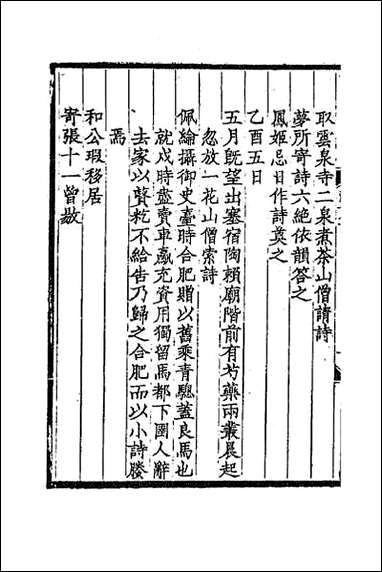 取雲泉寺二泉煮茶山僧請詩
夢所寄詩六絶依韻答之
鳳姬忌日作詩奠之
乙酉五日
五月旣望出塞宿陶賴廟階前有芍藥兩叢晨起
忽放一花山僧索詩
佩綸攝御史臺時合肥贈以舊乘青驄蓋良馬也
就戍時盡賣車驘充資用獨留馬都下圉人辭
去家以芻秣不給告乃歸之合肥而以小詩媵
焉
和公瑕移居
寄張十一曾敭